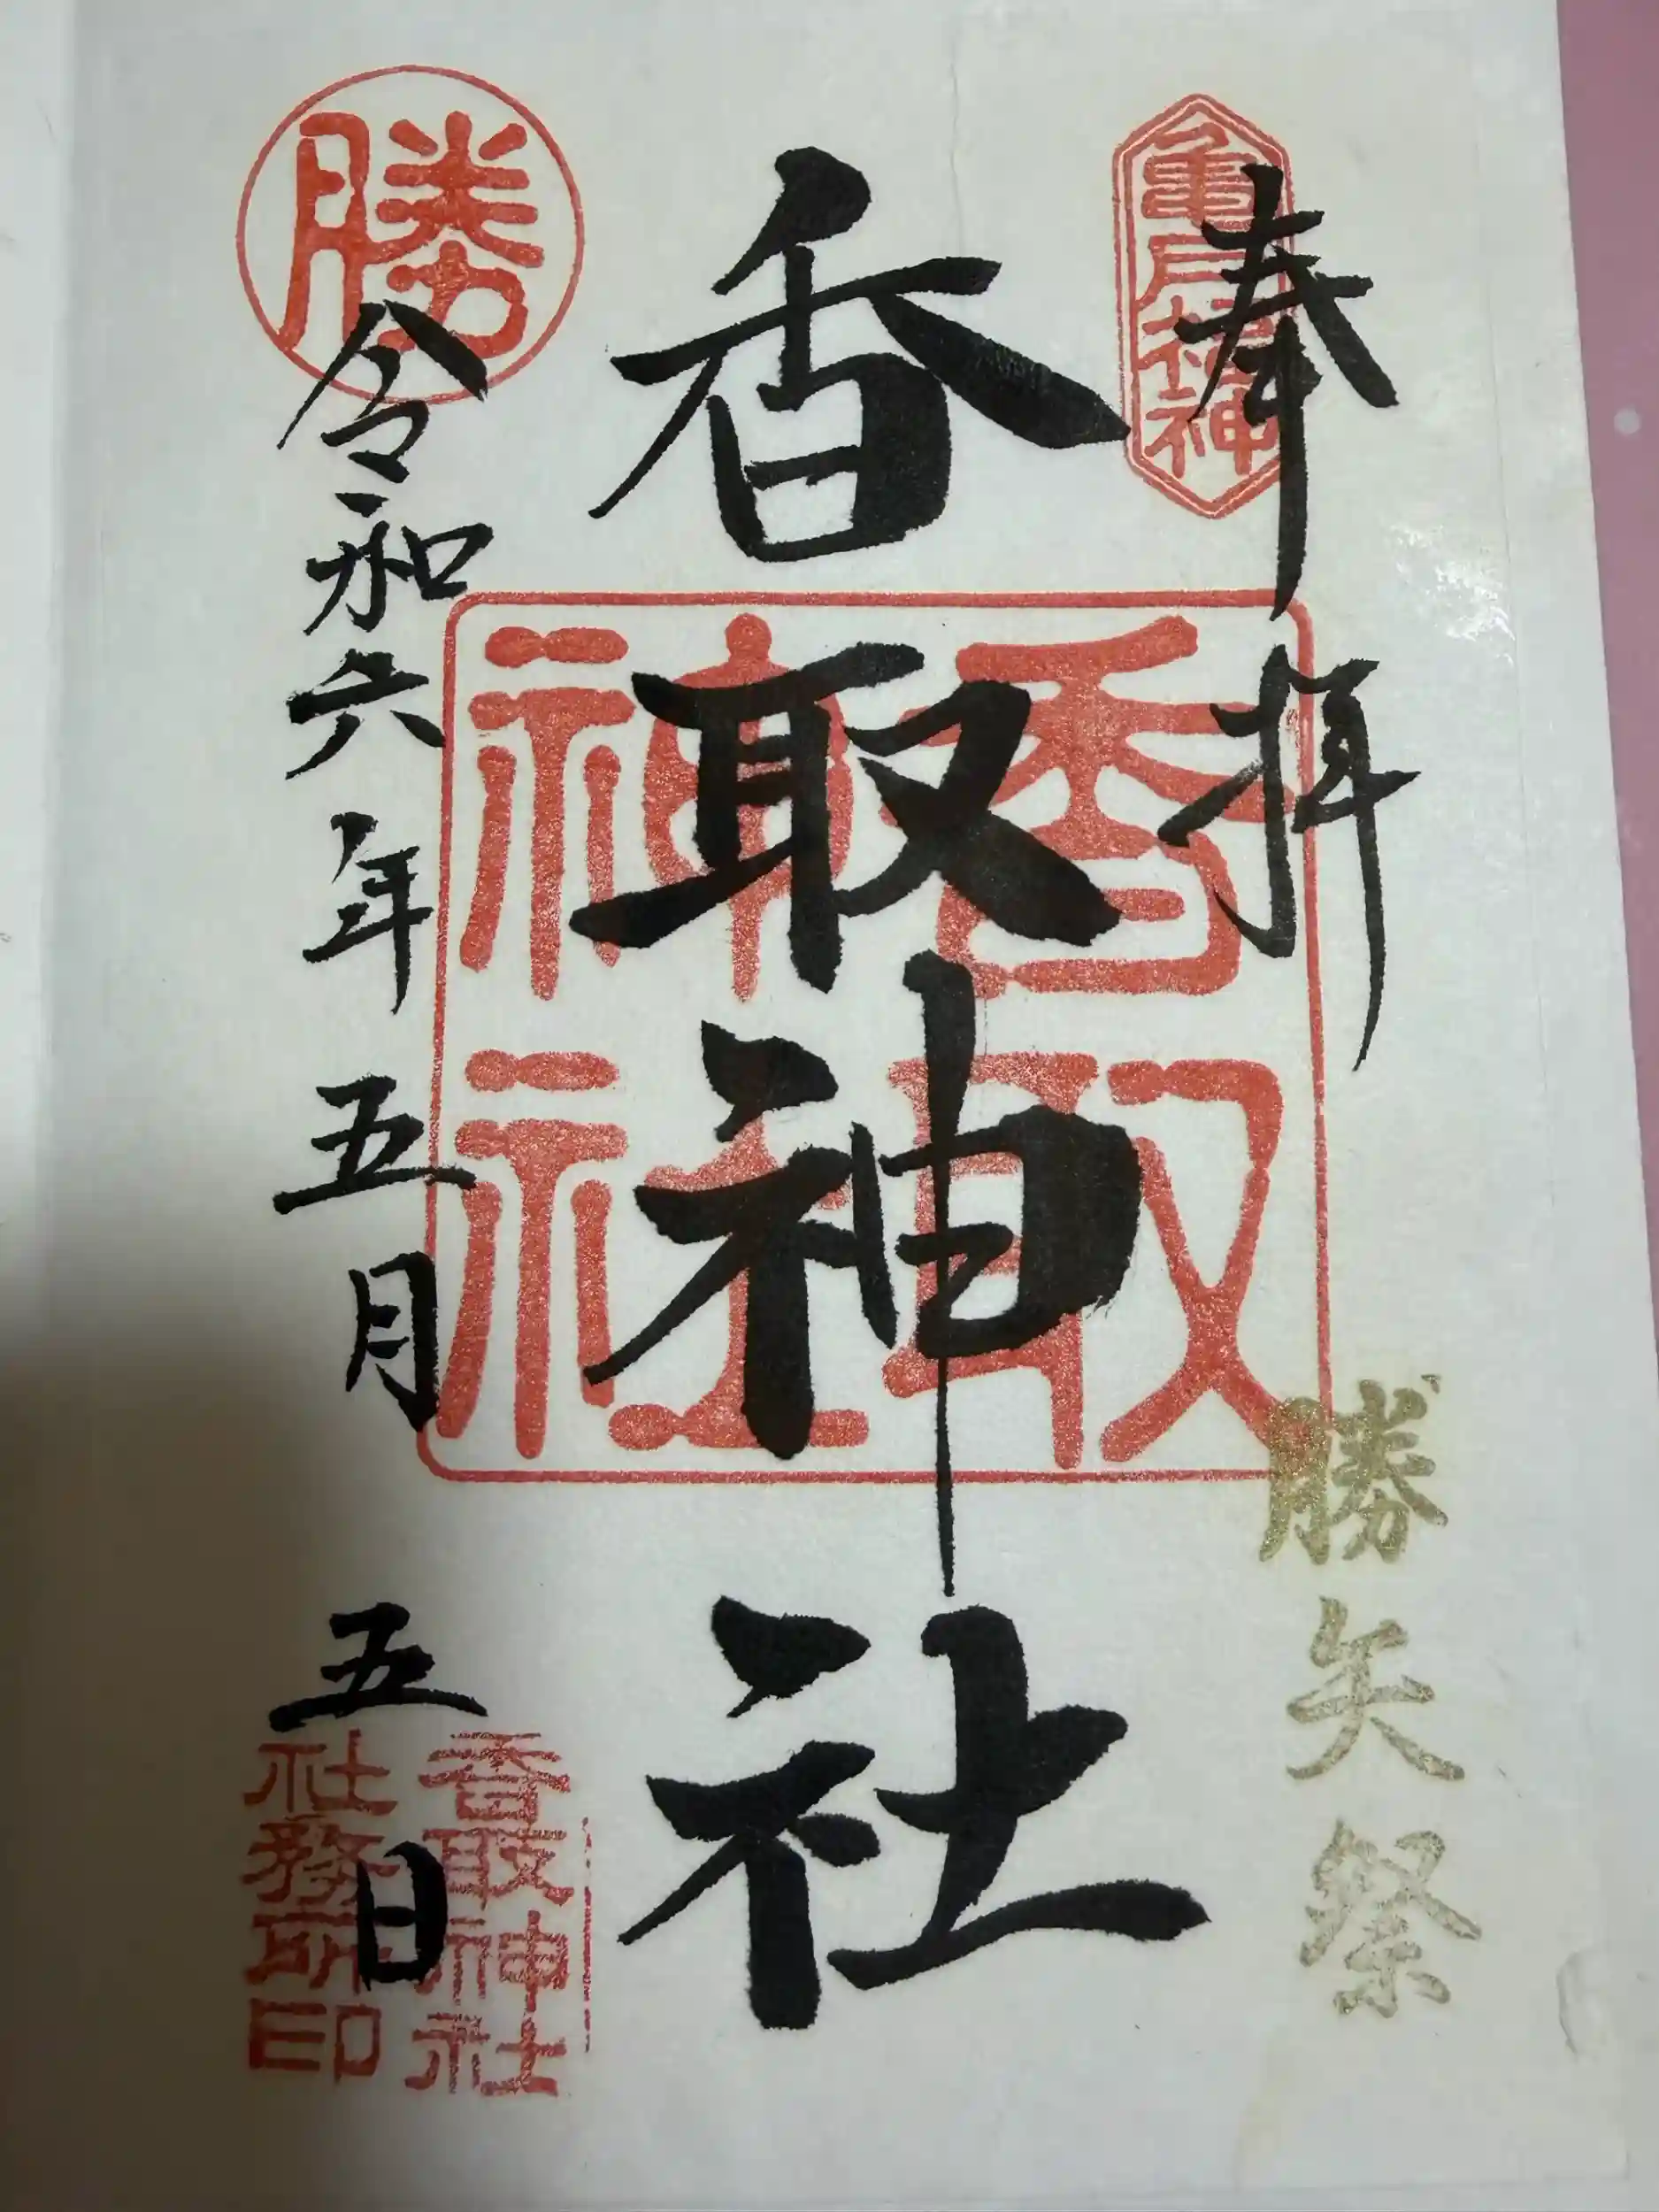 奉拝
亀戸福神
勝矢祭
香取神社
香取神社
勝
令和六年五月五日
香取神社
社務所印